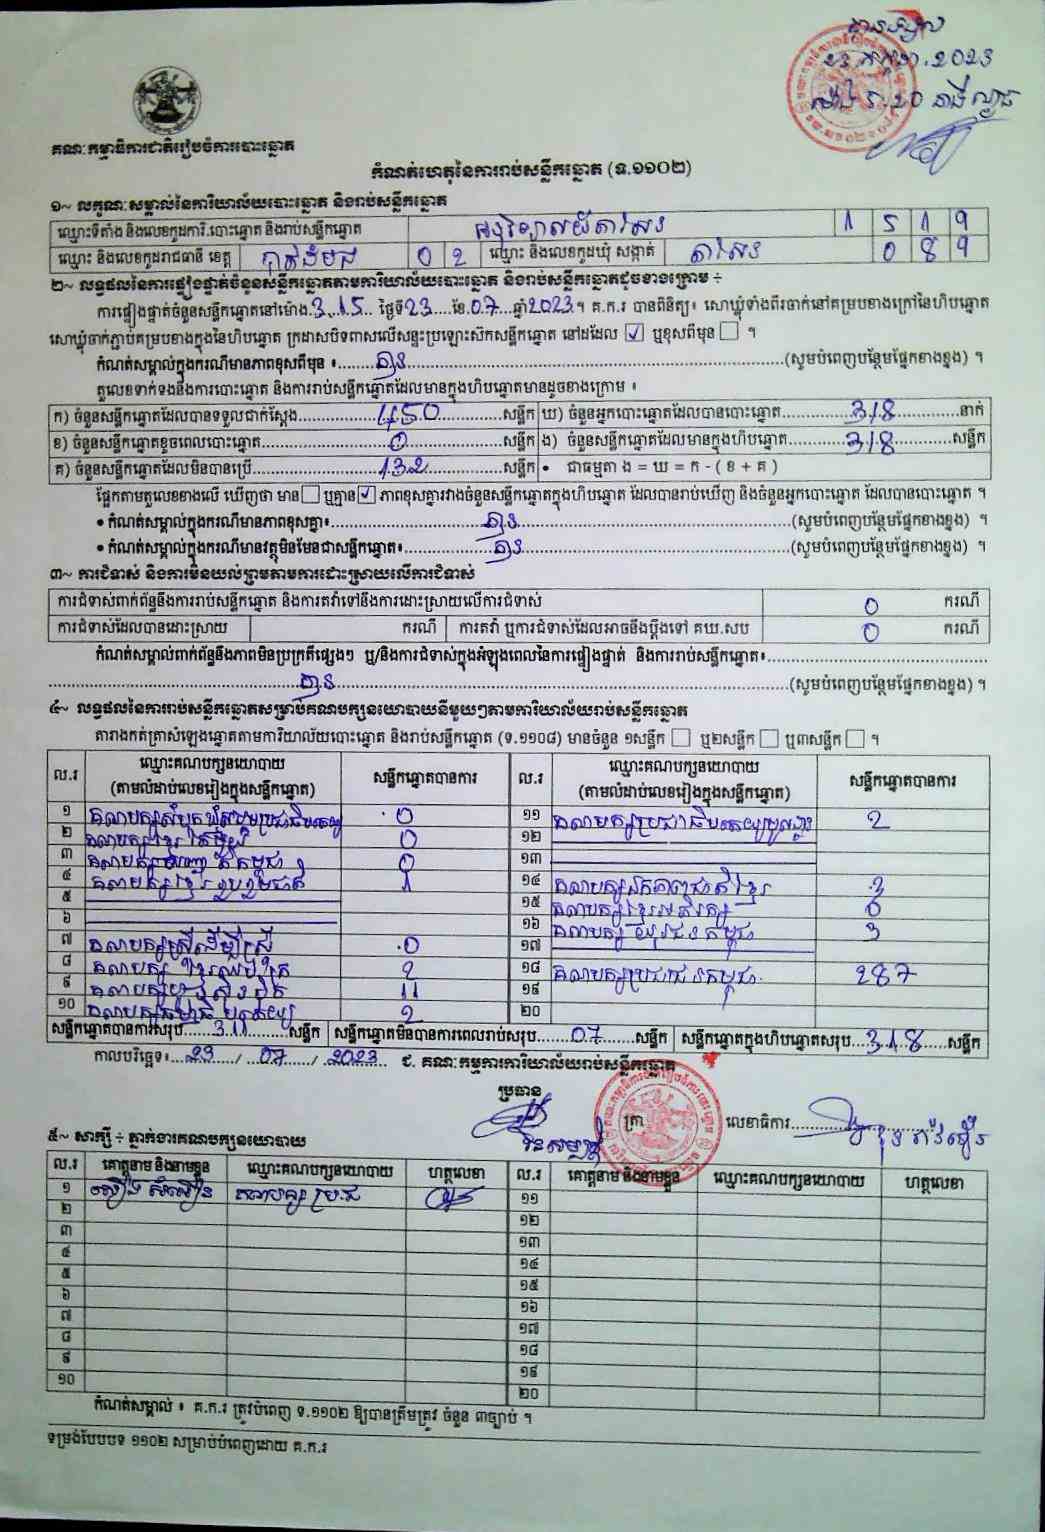 បានទទួល
២៣ កក្កដា 2023
គណៈកម្មាធិការជាតិរៀបចំការបោះឆ្នោត
កំណត់ហេតុនៃការរាប់សន្លឹកឆ្នោត (ទ.១១០២)
១~ លក្ខណៈសម្គាល់នៃការិយាល័យបោះឆ្នោត និងរាប់សន្លឹកឆ្នោត
ឈ្មោះទីតាំង និងលេខកូដការិ.បោះឆ្នោត និងរាប់សន្លឹកឆ្នោត អនុវិទ្យាល័យតាសរ 1 5 1 9
ឈ្មោះ និងលេខកូដរាជធានី ខេត្ត បាត់ដំបង 0 2 ឈ្មោះ និងលេខកូដឃុំ សង្កាត់ តាសរ 0 8 9
២~ លទ្ធផលនៃការផ្ទៀងផ្ទាត់ចំនួនសន្លឹកឆ្នោតតាមការិយាល័យបោះឆ្នោត និងរាប់សន្លឹកឆ្នោតដូចខាងក្រោម ÷
ការផ្ទៀងផ្ទាត់ចំនួនសន្លឹកឆ្នោតនៅម៉ោង 3.15 ថ្ងៃទី 23 ខែ 07 ឆ្នាំ 2023 ។ គ.ក.រ បានពិនិត្យ៖ សោឃ្លុំទាំងពីរចាក់នៅគម្របខាងក្រៅនៃហិបឆ្នោត
សោឃ្លុំចាក់ភ្ជាប់គម្របខាងក្នុងនៃហិបឆ្នោត ក្រដាសបិទពាសលើសន្ទះប្រឡោះស៊កសន្លឹកឆ្នោត នៅដដែល ✓ ឬខុសពីមុន ។
កំណត់សម្គាល់ក្នុងករណីមានភាពខុសពីមុន ៖ គ្មាន (សូមបំពេញបន្ថែមផ្នែកខាងខ្នង) ។
តួលេខទាក់ទងនឹងការបោះឆ្នោត និងការរាប់សន្លឹកឆ្នោតដែលមានក្នុងហិបឆ្នោតមានដូចខាងក្រោម ៖
ក) ចំនួនសន្លឹកឆ្នោតដែលបានទទួលជាក់ស្តែង 450 សន្លឹក ឃ) ចំនួនអ្នកបោះឆ្នោតដែលបានបោះឆ្នោត 318 នាក់
ខ) ចំនួនសន្លឹកឆ្នោតខូចពេលបោះឆ្នោត 0 សន្លឹក ង) ចំនួនសន្លឹកឆ្នោតដែលមានក្នុងហិបឆ្នោត 318 សន្លឹក
គ) ចំនួនសន្លឹកឆ្នោតដែលមិនបានប្រើ 132 សន្លឹក • ជាធម្មតា ង = ឃ = ក - ( ខ + គ )
ផ្អែកតាមតួលេខខាងលើ ឃើញថា មាន ឬគ្មាន ✓ ភាពខុសគ្នារវាងចំនួនសន្លឹកឆ្នោតក្នុងហិបឆ្នោត ដែលបានរាប់ឃើញ និងចំនួនអ្នកបោះឆ្នោត ដែលបានបោះឆ្នោត ។
• កំណត់សម្គាល់ក្នុងករណីមានភាពខុសគ្នា៖ គ្មាន (សូមបំពេញបន្ថែមផ្នែកខាងខ្នង) ។
• កំណត់សម្គាល់ក្នុងករណីមានវត្ថុមិនមែនជាសន្លឹកឆ្នោត៖ គ្មាន (សូមបំពេញបន្ថែមផ្នែកខាងខ្នង) ។
៣~ ការជំទាស់ និងការមិនយល់ព្រមតាមការដោះស្រាយលើការជំទាស់
ការជំទាស់ពាក់ព័ន្ធនឹងការរាប់សន្លឹកឆ្នោត និងការតវ៉ាទៅនឹងការដោះស្រាយលើការជំទាស់ 0 ករណី
ការជំទាស់ដែលបានដោះស្រាយ ករណី ការតវ៉ា ឬការជំទាស់ដែលអាចនឹងប្តឹងទៅ គឃ.សប 0 ករណី
កំណត់សម្គាល់ពាក់ព័ន្ធនឹងភាពមិនប្រក្រតីផ្សេងៗ ឬ/និងការជំទាស់ក្នុងអំឡុងពេលនៃការផ្ទៀងផ្ទាត់ និងការរាប់សន្លឹកឆ្នោត៖
គ្មាន (សូមបំពេញបន្ថែមផ្នែកខាងខ្នង) ។
៤~ លទ្ធផលនៃការរាប់សន្លឹកឆ្នោតសម្រាប់គណបក្សនយោបាយនីមួយៗតាមការិយាល័យរាប់សន្លឹកឆ្នោត
តារាងកត់ត្រាសំឡេងឆ្នោតតាមការិយាល័យបោះឆ្នោត និងរាប់សន្លឹកឆ្នោត (ទ.១១០៨) មានចំនួន ១សន្លឹក ឬ២សន្លឹក ឬ៣សន្លឹក ។
ល.រ ឈ្មោះគណបក្សនយោបាយ សន្លឹកឆ្នោតបានការ ល.រ ឈ្មោះគណបក្សនយោបាយ សន្លឹកឆ្នោតបានការ
(តាមលំដាប់លេខរៀងក្នុងសន្លឹកឆ្នោត) (តាមលំដាប់លេខរៀងក្នុងសន្លឹកឆ្នោត)
១ គណបក្សសំបុកឃ្មុំសង្គមប្រជាធិបតេយ្យ 0 ១១ គណបក្សប្រជាធិបតេយ្យមូលដ្ឋាន 2
២ គណបក្សខ្មែរ 0 ១២
៣ គណបក្ស កម្ពុជា 0 ១៣
៤ គណបក្សខ្មែររួបរួមជាតិ 1 ១៤ គណបក្សឯកភាពជាតិខ្មែរ 3
៥ ១៥ គណបក្សខ្មែរអភិរក្ស 0
៦ ១៦ គណបក្ស យុវជនកម្ពុជា 3
៧ គណបក្សស្ត្រីដើម្បីស្ត្រី 0 ១៧
៨ គណបក្ស ខ្មែរ 2 ១៨ គណបក្សប្រជាជនកម្ពុជា 287
៩ គណបក្សហ្វ៊ុនស៊ិនប៉ិច 11 ១៩
១០ គណបក្សធម្មាធិបតេយ្យ 2 ២០
សន្លឹកឆ្នោតបានការសរុប 311 សន្លឹក សន្លឹកឆ្នោតមិនបានការពេលរាប់សរុប 07 សន្លឹក សន្លឹកឆ្នោតក្នុងហិបឆ្នោតសរុប 318 សន្លឹក
កាលបរិច្ឆេទ៖ 23 / 07 / 2023 ជ. គណៈកម្មការការិយាល័យរាប់សន្លឹកឆ្នោត
ប្រធាន ត្រា លេខាធិការ
៥~ សាក្សី ÷ ភ្នាក់ងារគណបក្សនយោបាយ
ល.រ គោត្តនាម និងនាមខ្លួន ឈ្មោះគណបក្សនយោបាយ ហត្ថលេខា ល.រ គោត្តនាម និងនាមខ្លួន ឈ្មោះគណបក្សនយោបាយ ហត្ថលេខា
១ គណបក្ស ប្រ.ជ ១១
២ ១២
៣ ១៣
៤ ១៤
៥ ១៥
៦ ១៦
៧ ១៧
៨ ១៨
៩ ១៩
១០ ២០
កំណត់សម្គាល់ ៖ គ.ក.រ ត្រូវបំពេញ ទ.១១០២ ឱ្យបានត្រឹមត្រូវ ចំនួន ៣ច្បាប់ ។
ទម្រង់បែបបទ ១១០២ សម្រាប់បំពេញដោយ គ.ក.រ